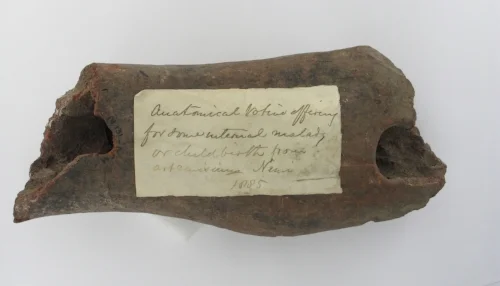 Anatomical Votive offering
for some internal malady
or childbirth from
Near
1885